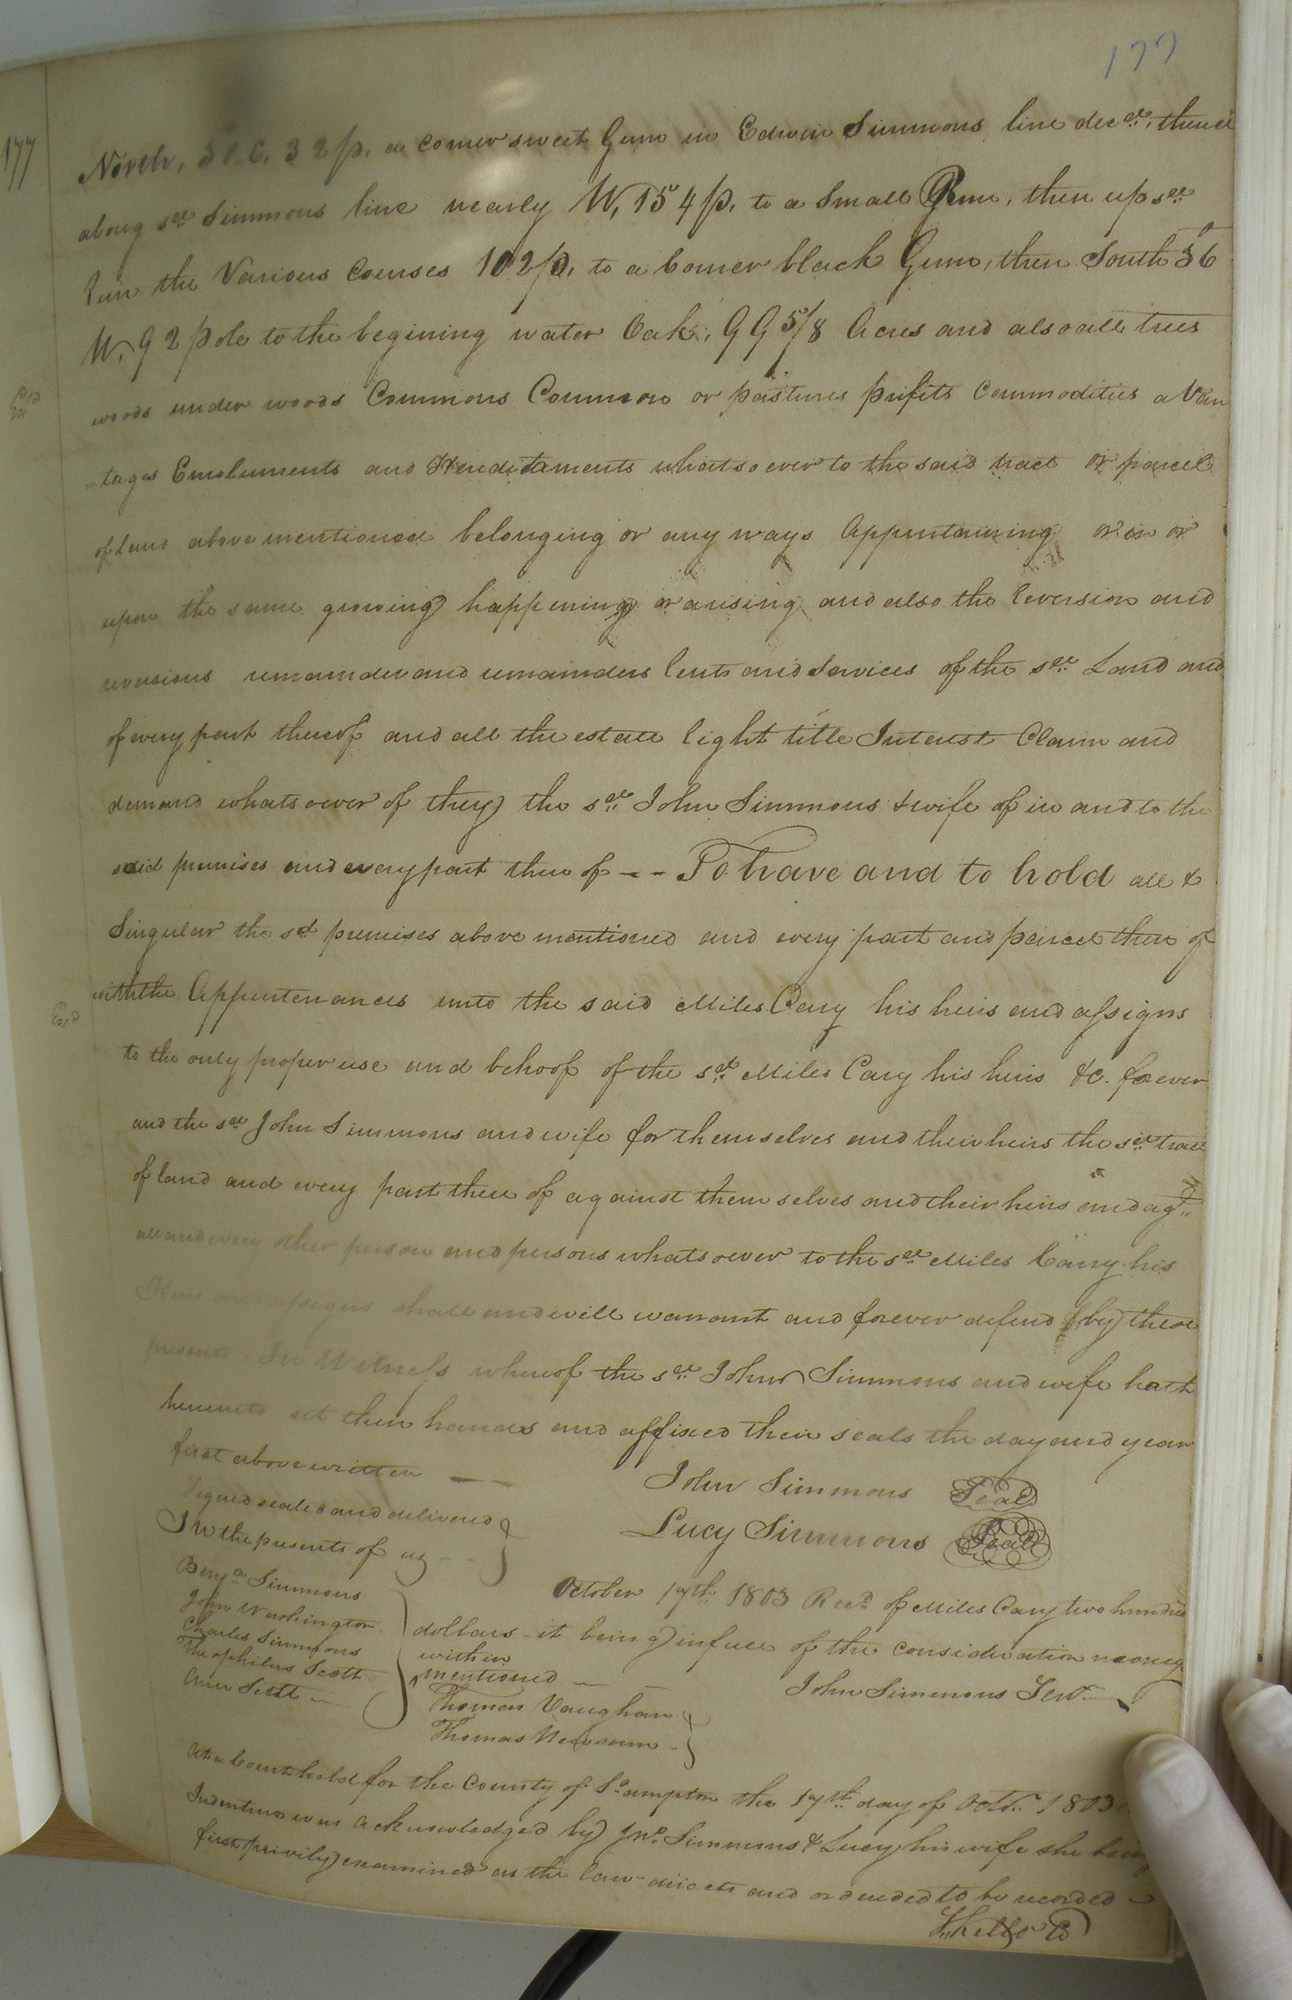 177
177
North, 30 E. 32 p. a corner sweet Gum in Edwin Simmons line decd. thence
along sd. Simmons line nearly W, 154 p, to a Small Run, then up sd.
run the Various Courses 102 p, to a Corner black Gum, then South 36
W, 92 pole to the begining water Oak, 99 5/8 Acres and also all trees
woods under woods Commons Common or pastures profits Commodities advan
-tages Emoluments and Hereditaments whatsoever to the said tract or parcel
of land above mentioned belonging or any ways Appurtaining or in or
upon the same growing happening or arising and also the reversion and
reversions remainder and remainders rents and Services of the sd. Land and
of every part thereof and all the estate right title Interest Claim and
demand whatsoever of they the sd. John Simmons & wife of in and to the
said premises and every part there of -- To have and to hold all &
Singular the sd. premises above mentioned and every part and parcel there of
with the Appurtenances unto the said Miles Cary his heirs and assigns
to the only proper use and behoof of the sd. Miles Cary his heirs &c. forever
and the sd. John Simmons and wife for themselves and their heirs the sd. tract
of land and every part there of against themselves and their heirs and agt.
all and every other person and persons whatsoever to the sd. Miles Cary his
Heirs and assigns shall and will warrant and forever defend by these
presents. In Witness whereof the sd. John Simmons and wife hath
hereunto set their hands and affixed their seals the day and year
first above written
John Simmons Seal
Lucy Simmons Seal
Signed sealed and delivered
In the presents of us
Benja. Simmons
John Washington
Charles Simmons
Theophilus Scott
Ann Scott
October 17th. 1803 Recd. of Miles Cary two hundred
dollars it being in full of the consideration money
within
mentioned
John Simmons Senr.
Thomas Vaughan
Thomas Newsum
At a Court held for the County of So.ampton the 17th. day of Octr. 1803
Indenture was acknowledged by Jno. Simmons & Lucy his wife she being
first privily examined as the law directs and ordended to be recorded